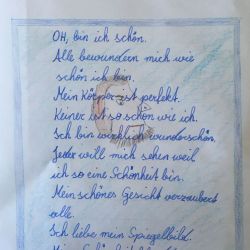 OH, bin ich schön.
Alle bewundern mich wie
schön ich bin.
Mein Körper ist perfekt.
Keiner ist so schön wie ich.
Ich bin wirklich wunderschön.
Jeder will mich sehen weil
ich so eine Schönheit bin.
Mein schönes Gesicht verzaubert
alle.
Ich liebe mein Spiegelbild.